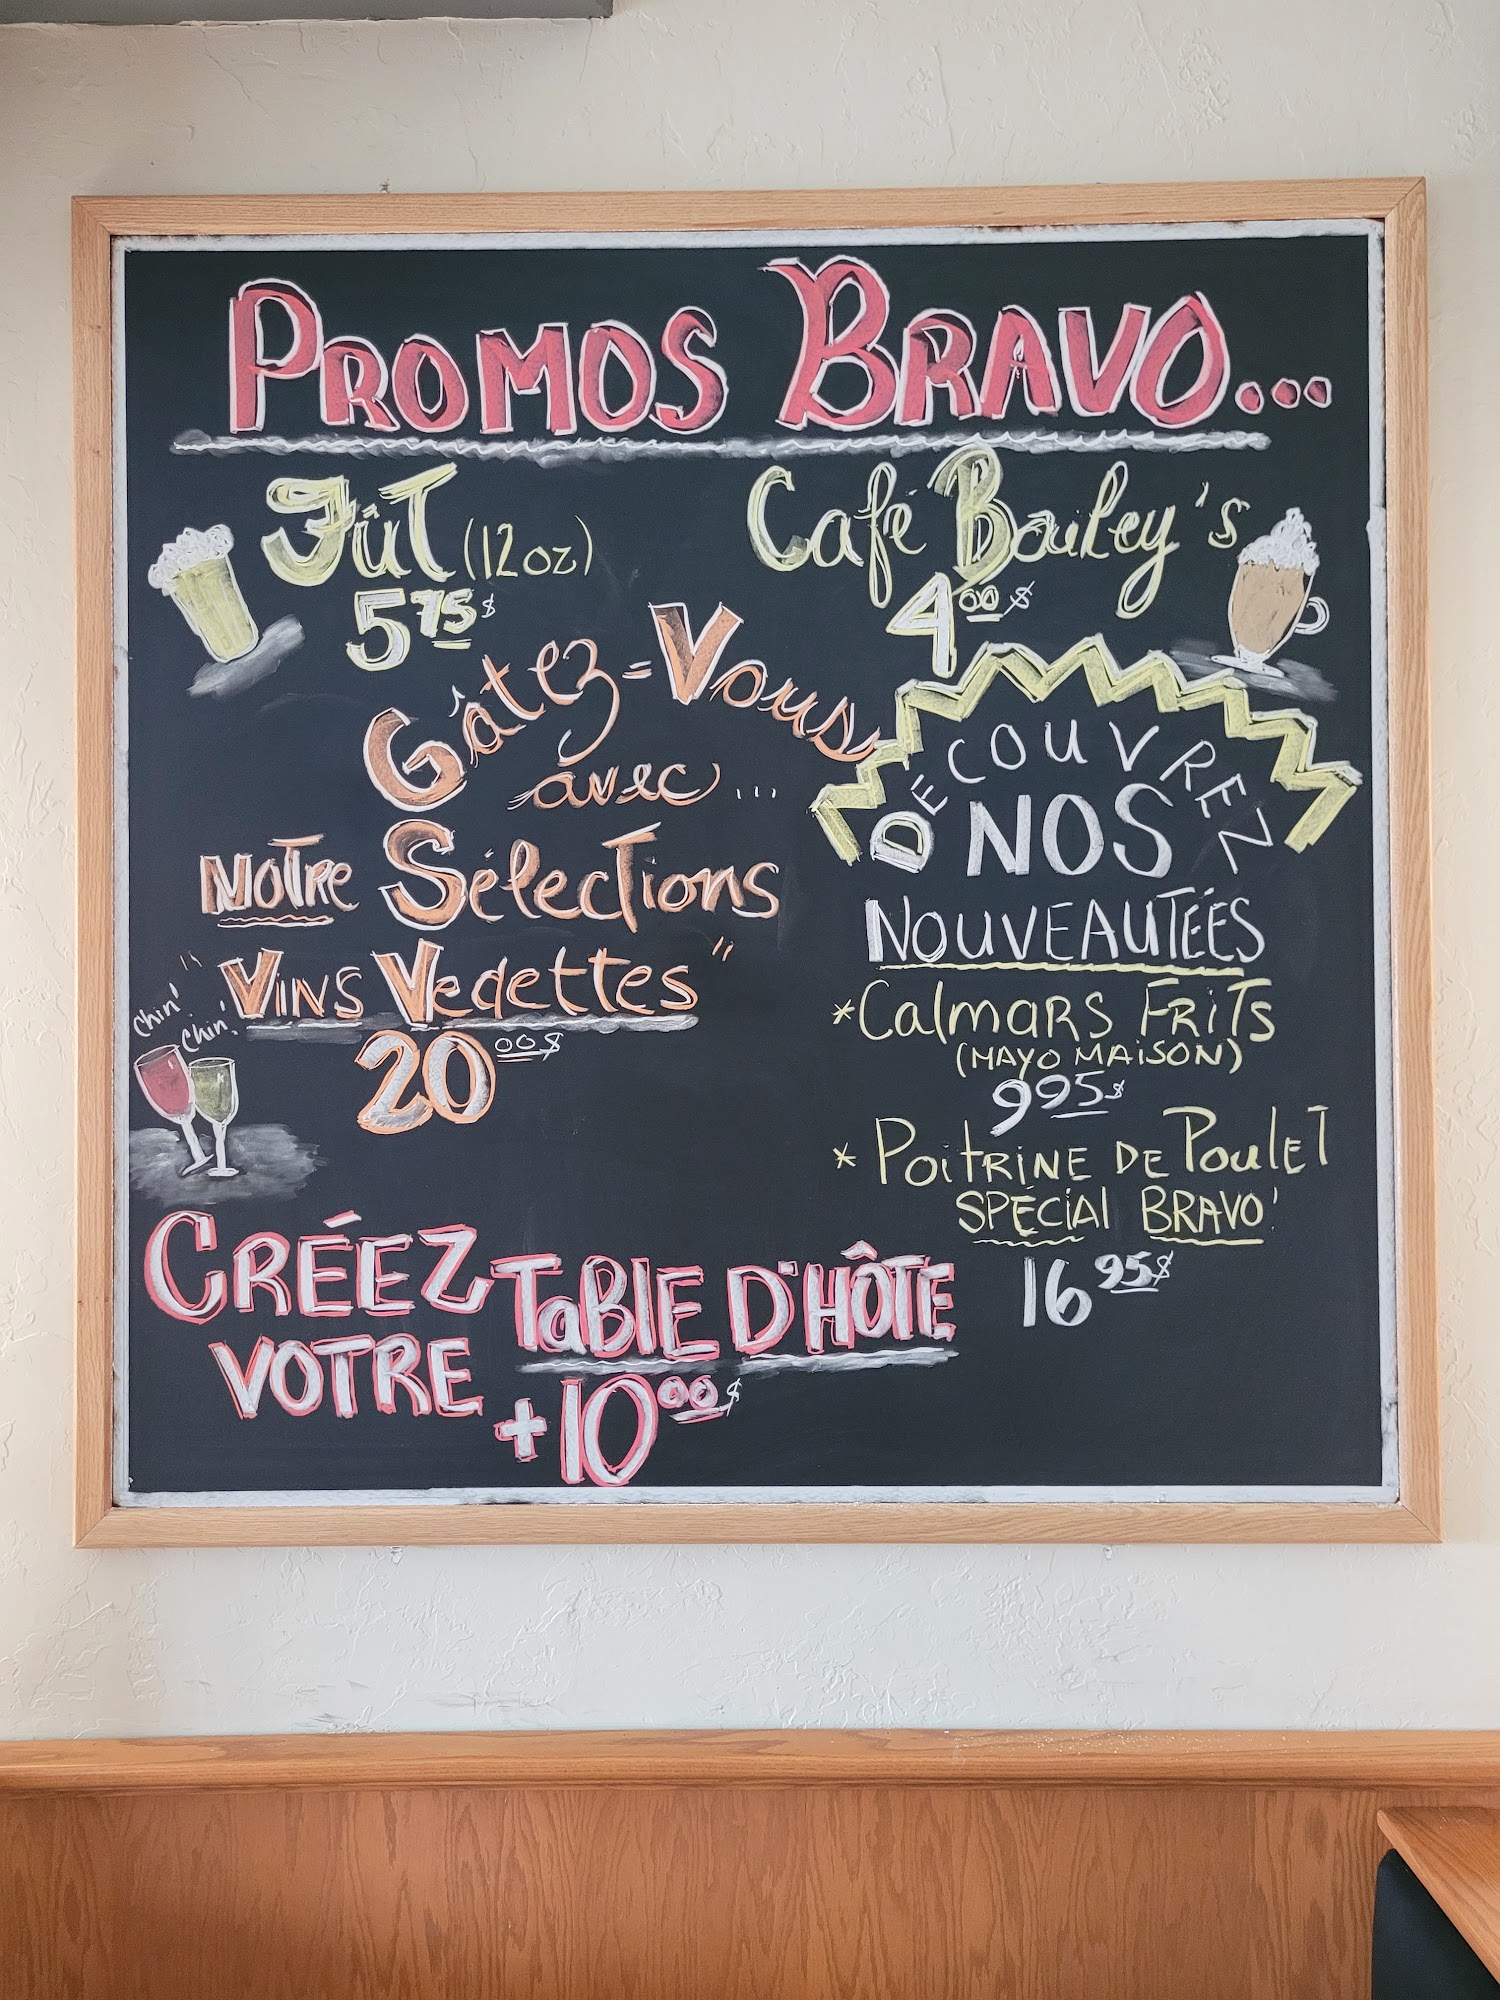 PROMOS BRAVO...
FûT (12 oz)
5 75 $
Café Bailey's
4 00 $
Gâtez-Vous
avec ...
NOTRE SélecTions
"VINS Vedettes"
20 00 $
Chin'
Chin'!
DÉCOUVREZ
NOS
NOUVEAUTÉES
*CalmaRS FRiTS
(MAYO MAISON)
9 95 $
* PoitRINE DE PoulET
SPÉCIAl BRAVO!
16 95 $
CRÉEZ
VOTRE
TaBlE D'HÔTE
+10 00 $